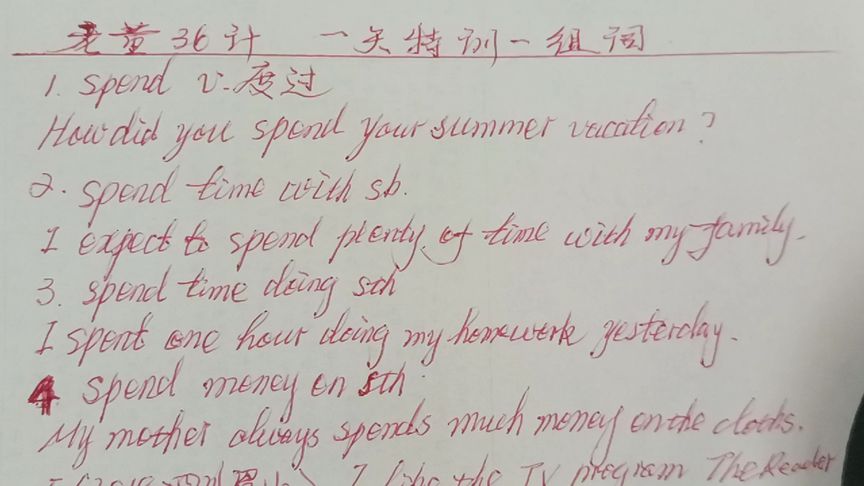 老黄36计 一天特训一组词
1. spend v.度过
How did you spend your summer vacation?
2. spend time with sb.
I expect to spend plenty of time with my family.
3. spend time doing sth
I spent one hour doing my homework yesterday.
4 spend money on sth.
My mother always spends much money on the cloths.
I like the TV program The Reader